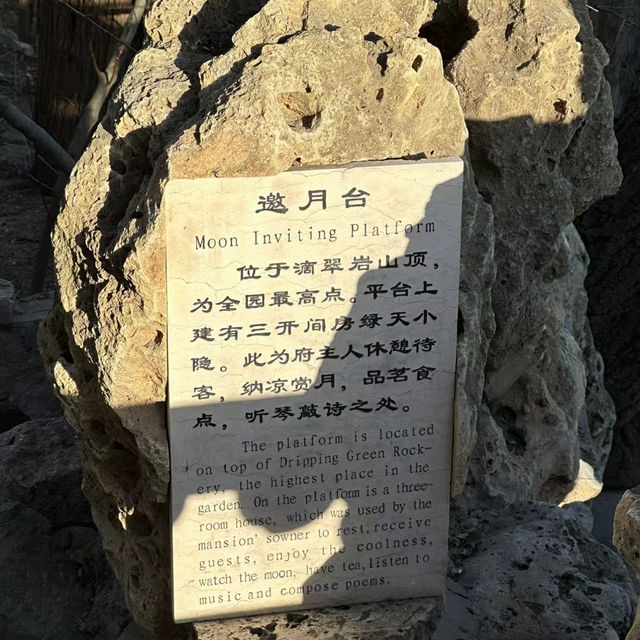 邀月台
Moon Inviting Platform
位于滴翠岩山顶，
为全园最高点。平台上
建有三开间房绿天小
隐。此为府主人休憩待
客，纳凉赏月，品茗食
点，听琴敲诗之处。
The platform is located
on top of Dripping Green Rock-
ery, the highest place in the
garden. On the platform is a three-
room house, which was used by the
mansion' sowner to rest, receive
guests, enjoy the coolness,
watch the moon, have tea, listen to
music and compose poems.